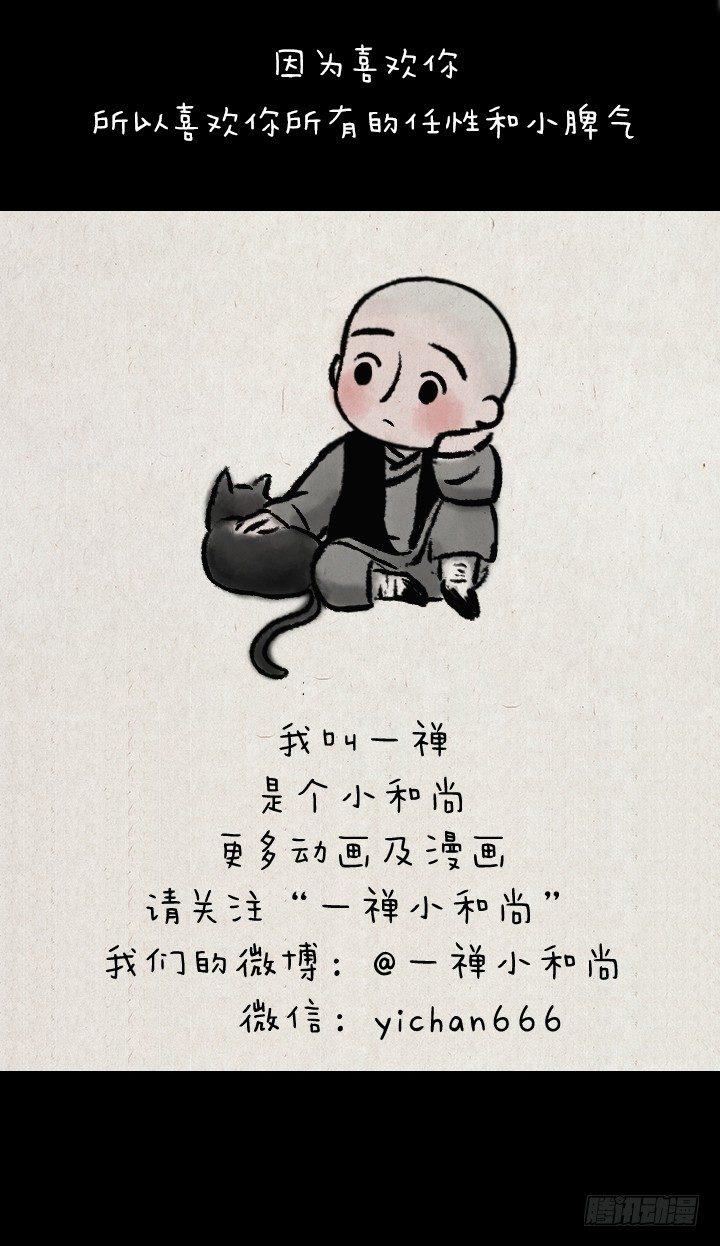 因为喜欢你
所以喜欢你所有的任性和小脾气
我叫一禅
是个小和尚
更多动画及漫画
请关注“一禅小和尚”
我们的微博：@一禅小和尚
微信：yichan666
腾讯动漫